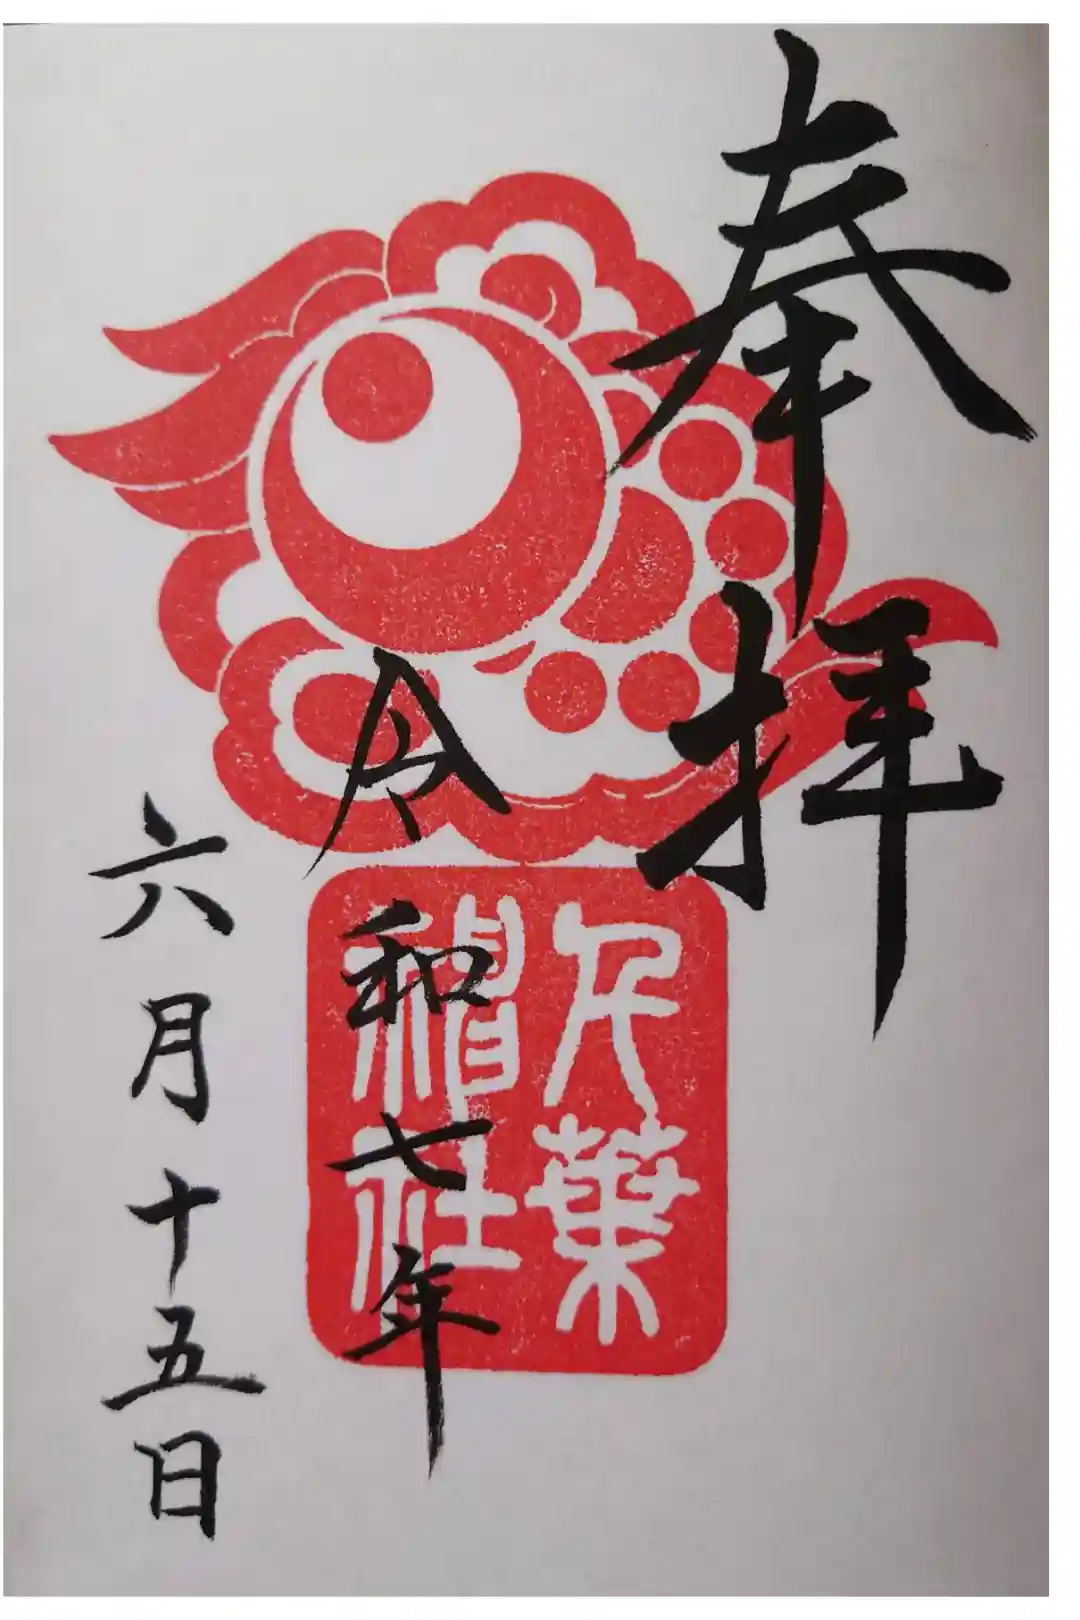 奉拝
葉
社
令和七年
六月十五日